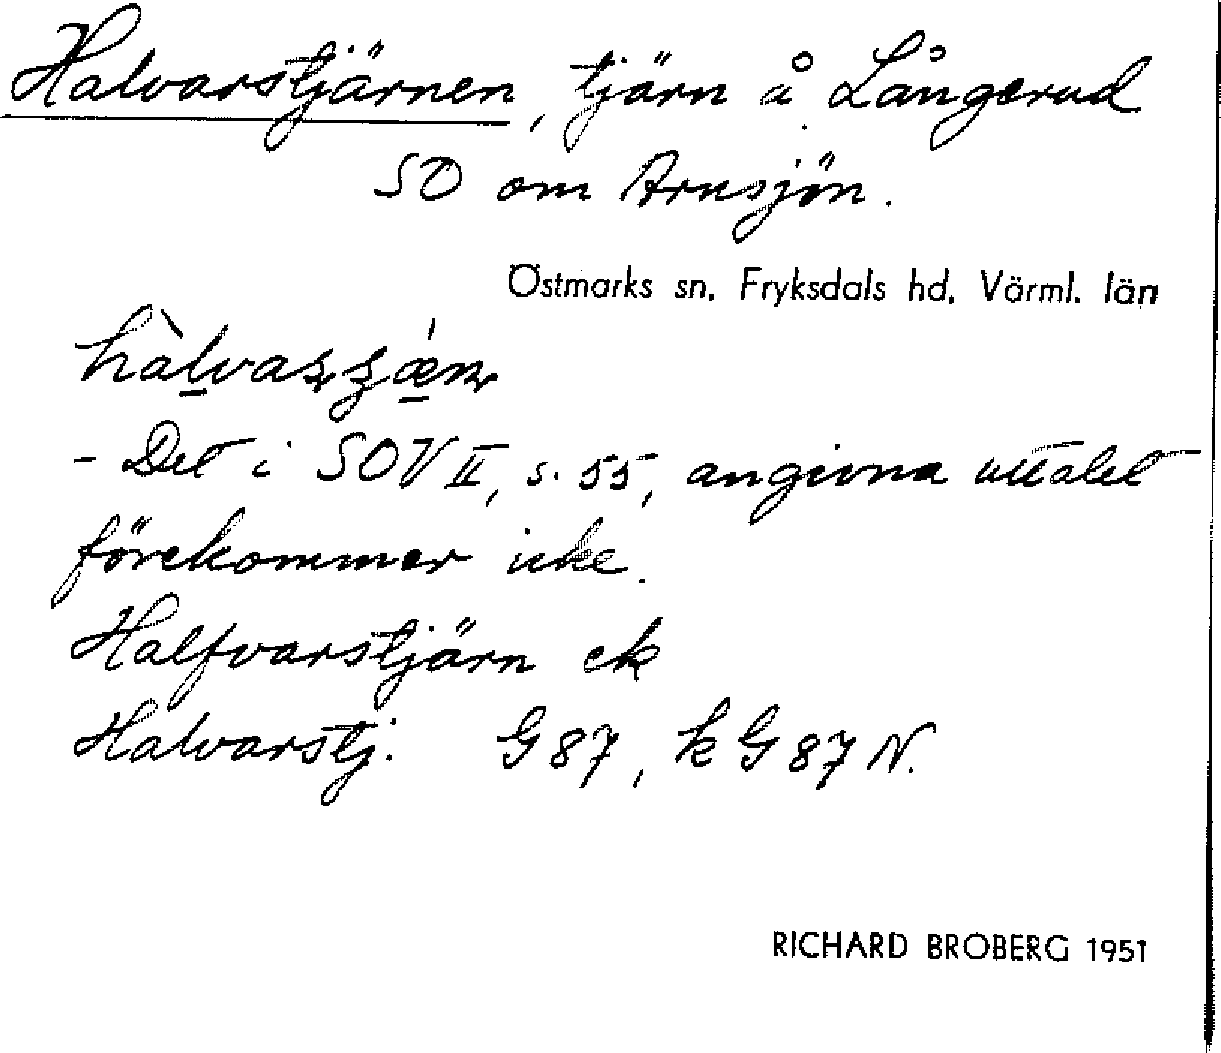 Halvarstjärnen, tjärn å Långerud
SO om Arnsjön.
Östmarks sn. Fryksdals hd. Värml. län
- Det i SOV II, s. 55, angivna uttalet
förekommer icke.
Halfvarstjärn ek
Halvarstj. G 87, k G 87 N.
RICHARD BROBERG 1951